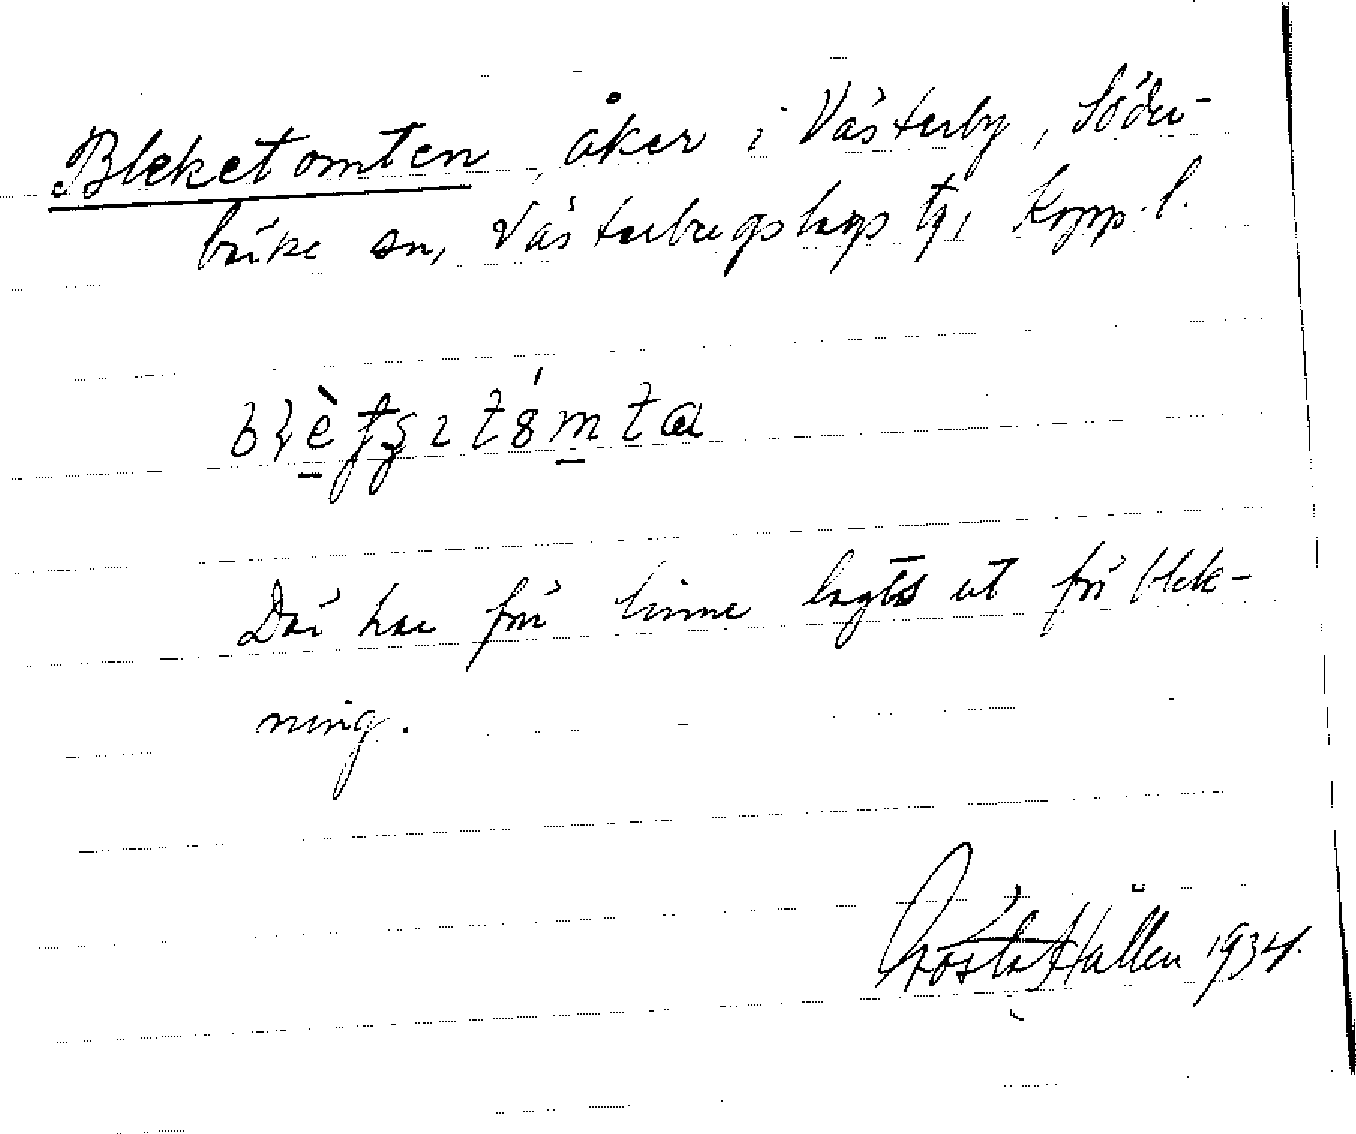 Bleketomten, åker i Västerby, Söder-
bärke sn, Västerbergslags tg, Kopp. l.
Där har förr linne lagts ut för blek-
ning.
Gösta Hallén 1934.